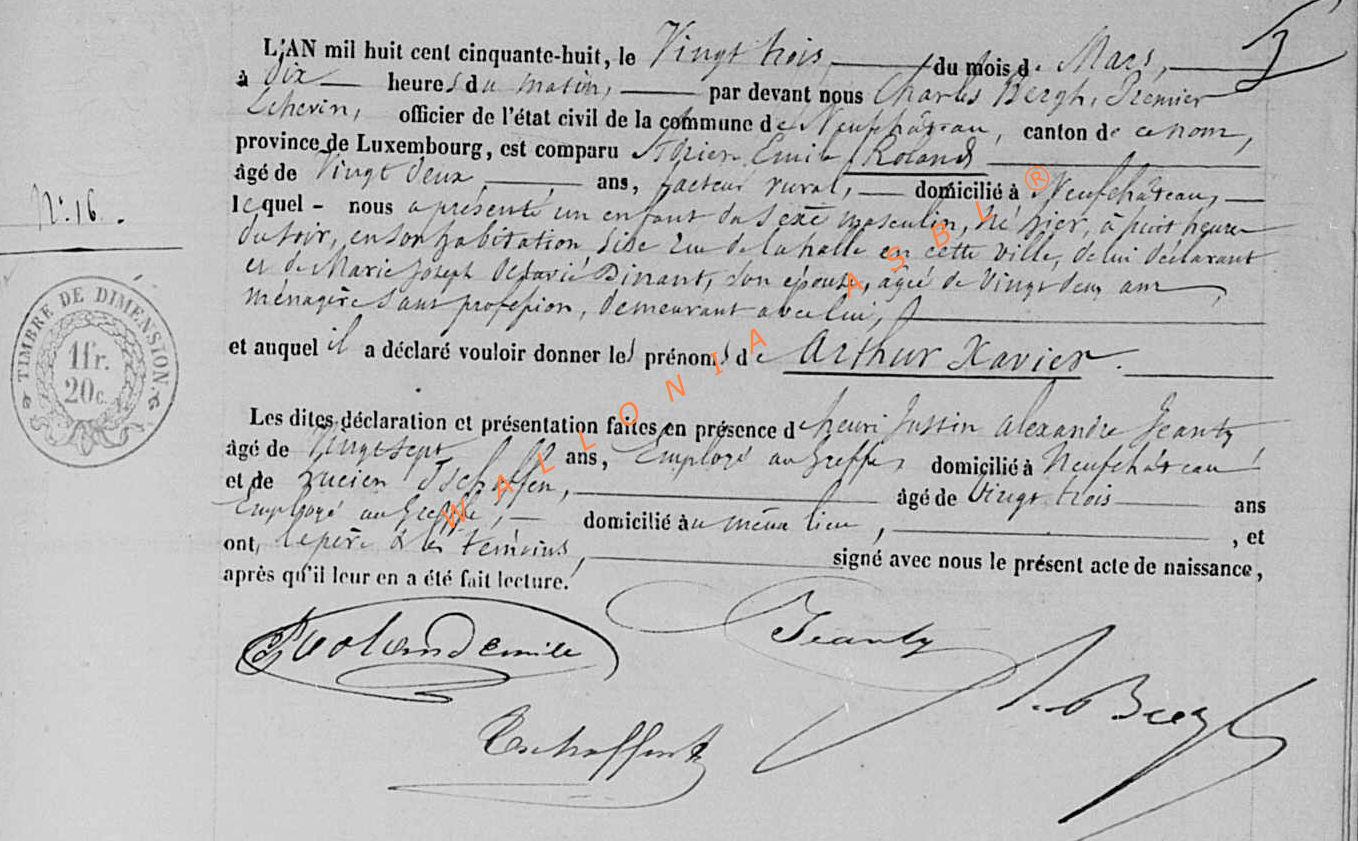 L'AN mil huit cent cinquante-huit, le Vingt trois, du mois de Mars,
à dix heures du matin, par devant nous Charles Bergh, Premier
Echevin, officier de l'état civil de la commune de Neufchâteau, canton de ce nom,
province de Luxembourg, est comparu Adrien Emile Roland
âgé de Vingt deux, ans, facteur rural, domicilié à Neufchâteau,
lequel - nous a présenté un enfant du sexe masculin, né hier, à huit heures
N.° 16.
du soir, en son habitation, sise rue de la halle en cette ville, de lui déclarant
et de Marie Joseph Octavie Dinant, son épouse, agée de Vingt deux ans
ménagère sans profession, demeurant avec lui,
et auquel il a déclaré vouloir donner les prénoms de Arthur Xavier.
TIMBRE DE DIMENSION
1fr.
20c.
Les dites déclaration et présentation faites en présence de henri Justin alexandre Jeanty
âgé de Vingt sept ans, Employé au Greffe, domicilié à Neufchâteau
et de Lucien Tschoffen, âgé de Vingt trois ans
Employé au Greffe, domicilié au même lieu, , et
ont, le père & les témoins, signé avec nous le présent acte de naissance,
après qu'il leur en a été fait lecture.
Roland Emile
Jeanty
Bergh
Tschoffen
WALLONIA ASBL ®